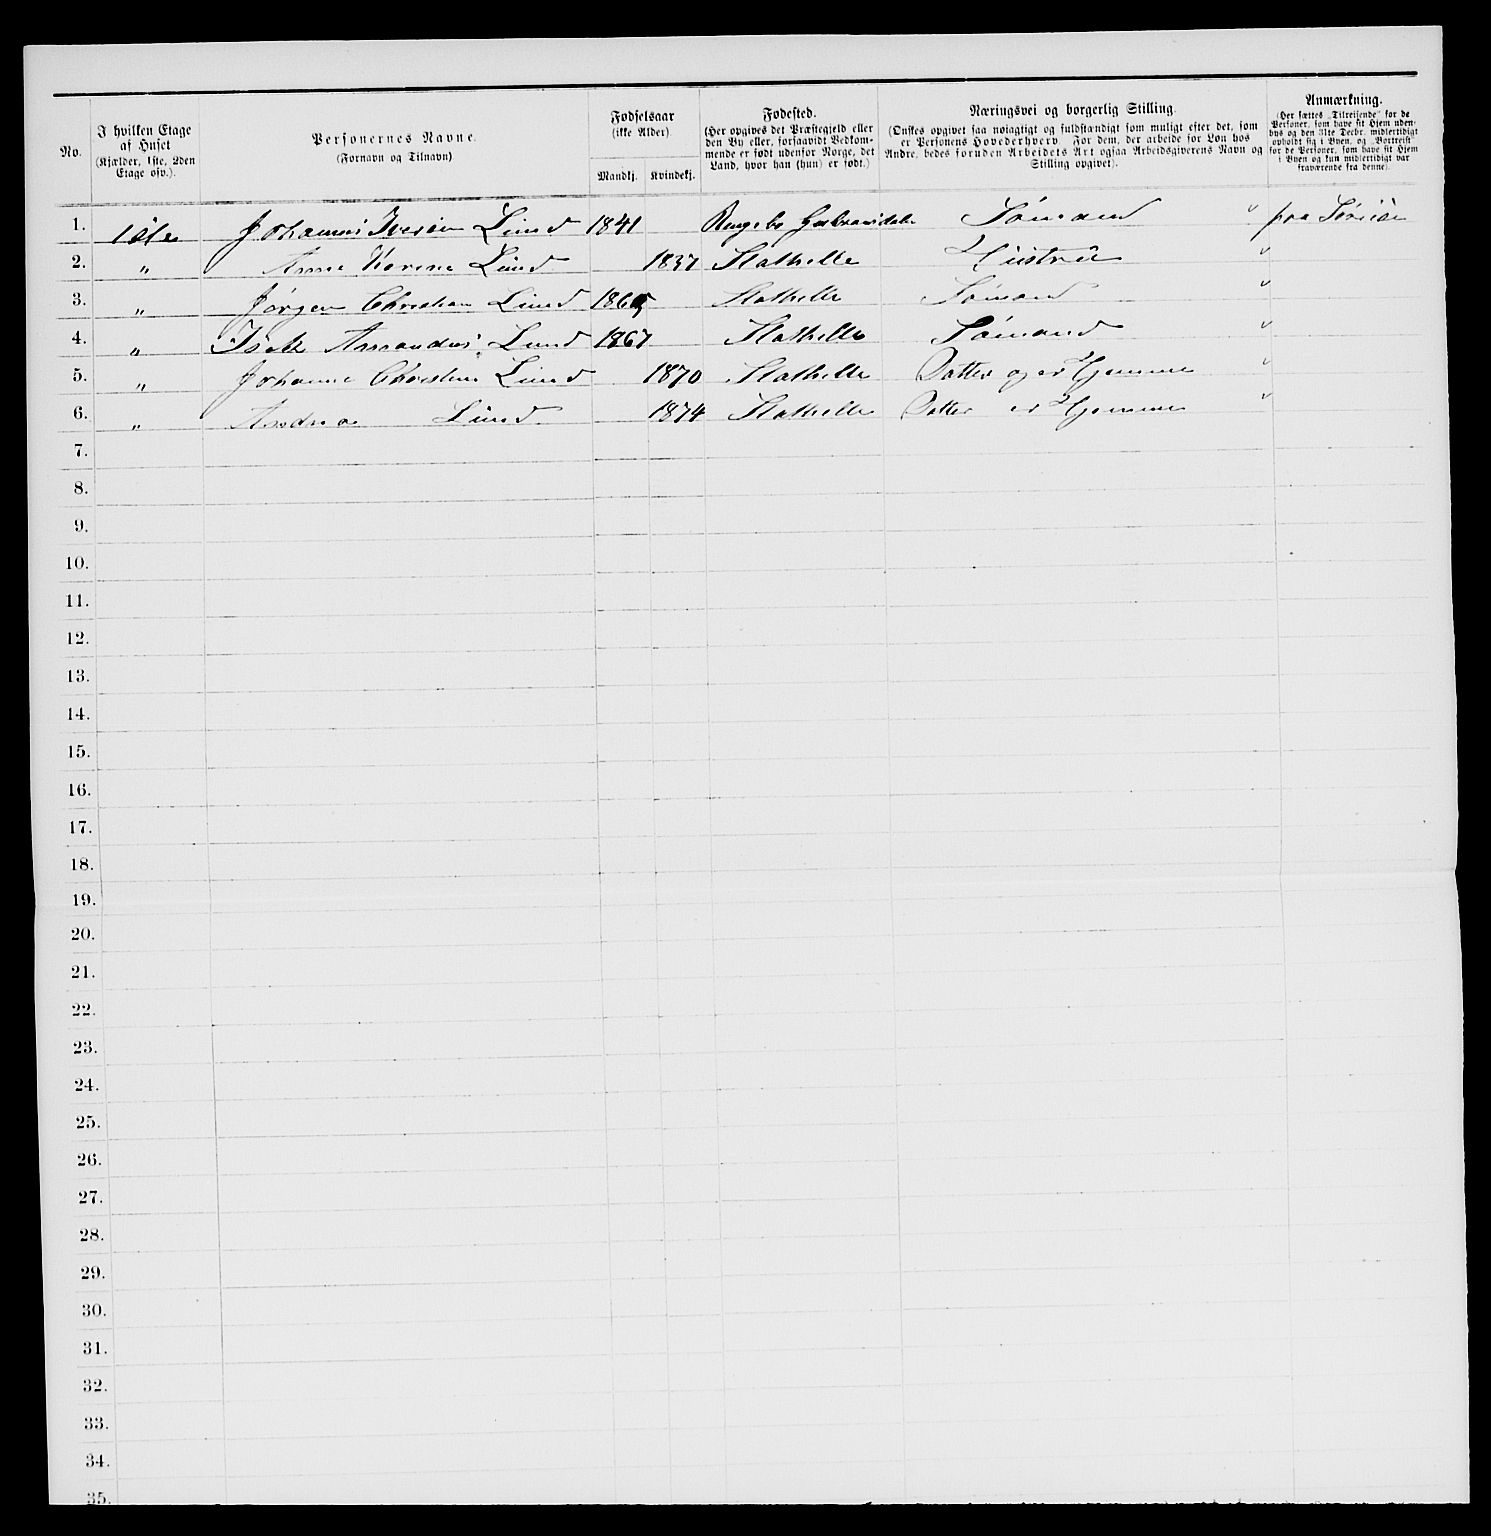 No.
I hvilken Etage af Huset
(Kjælder, 1ste, 2den Etage osv.).
Personernes Navne.
(Fornavn og Tilnavn)
Fødselsaar
(ikke Alder)
Mandkj. Kvindekj.
Fødested.
(Her opgives det Præstegjeld eller
den By eller, forsaavidt Vedkom-
mende er født udenfor Norge, det
Land, hvor han (hun) er født.)
Næringsvei og borgerlig Stilling.
(Ønskes opgivet saa nøiagtigt og fuldstændigt som muligt efter det, som
er Personens Hovederhverv. For dem, der arbeide for Løn hos
Andre, bedes foruden Arbeidets Art ogsaa Arbeidsgiverens Navn og
Stilling opgivet).
Anmærkning.
(Her sættes „Tilreisende“ for de
Personer, som have sit Hjem uden-
bys og den 31te Decbr. midlertidigt
opholdt sig i Byen, og „Bortreist“
for de Personer, som have sit Hjem
i Byen og kun midlertidigt var
fraværende fra denne).
1. 1ste Johannes Iversen Lund 1841 Ringebo Gulbransdalen Sömand paa Söreise
2. „ Anne Karine Lund 1837 Stathelle Hustru
3. „ Jörgen Christian Lund 1865 Stathelle Sömand
4. „ Isak Amandus Lund 1867 Stathelle Sömand
5. „ Johanne Christine Lund 1870 Stathelle Datter og er Hjemme
6. „ Andrea Lund 1874 Stathelle Datter er Hjemme
7.
8.
9.
10.
11.
12.
13.
14.
15.
16.
17.
18.
19.
20.
21.
22.
23.
24.
25.
26.
27.
28.
29.
30.
31.
32.
33.
34.
35.